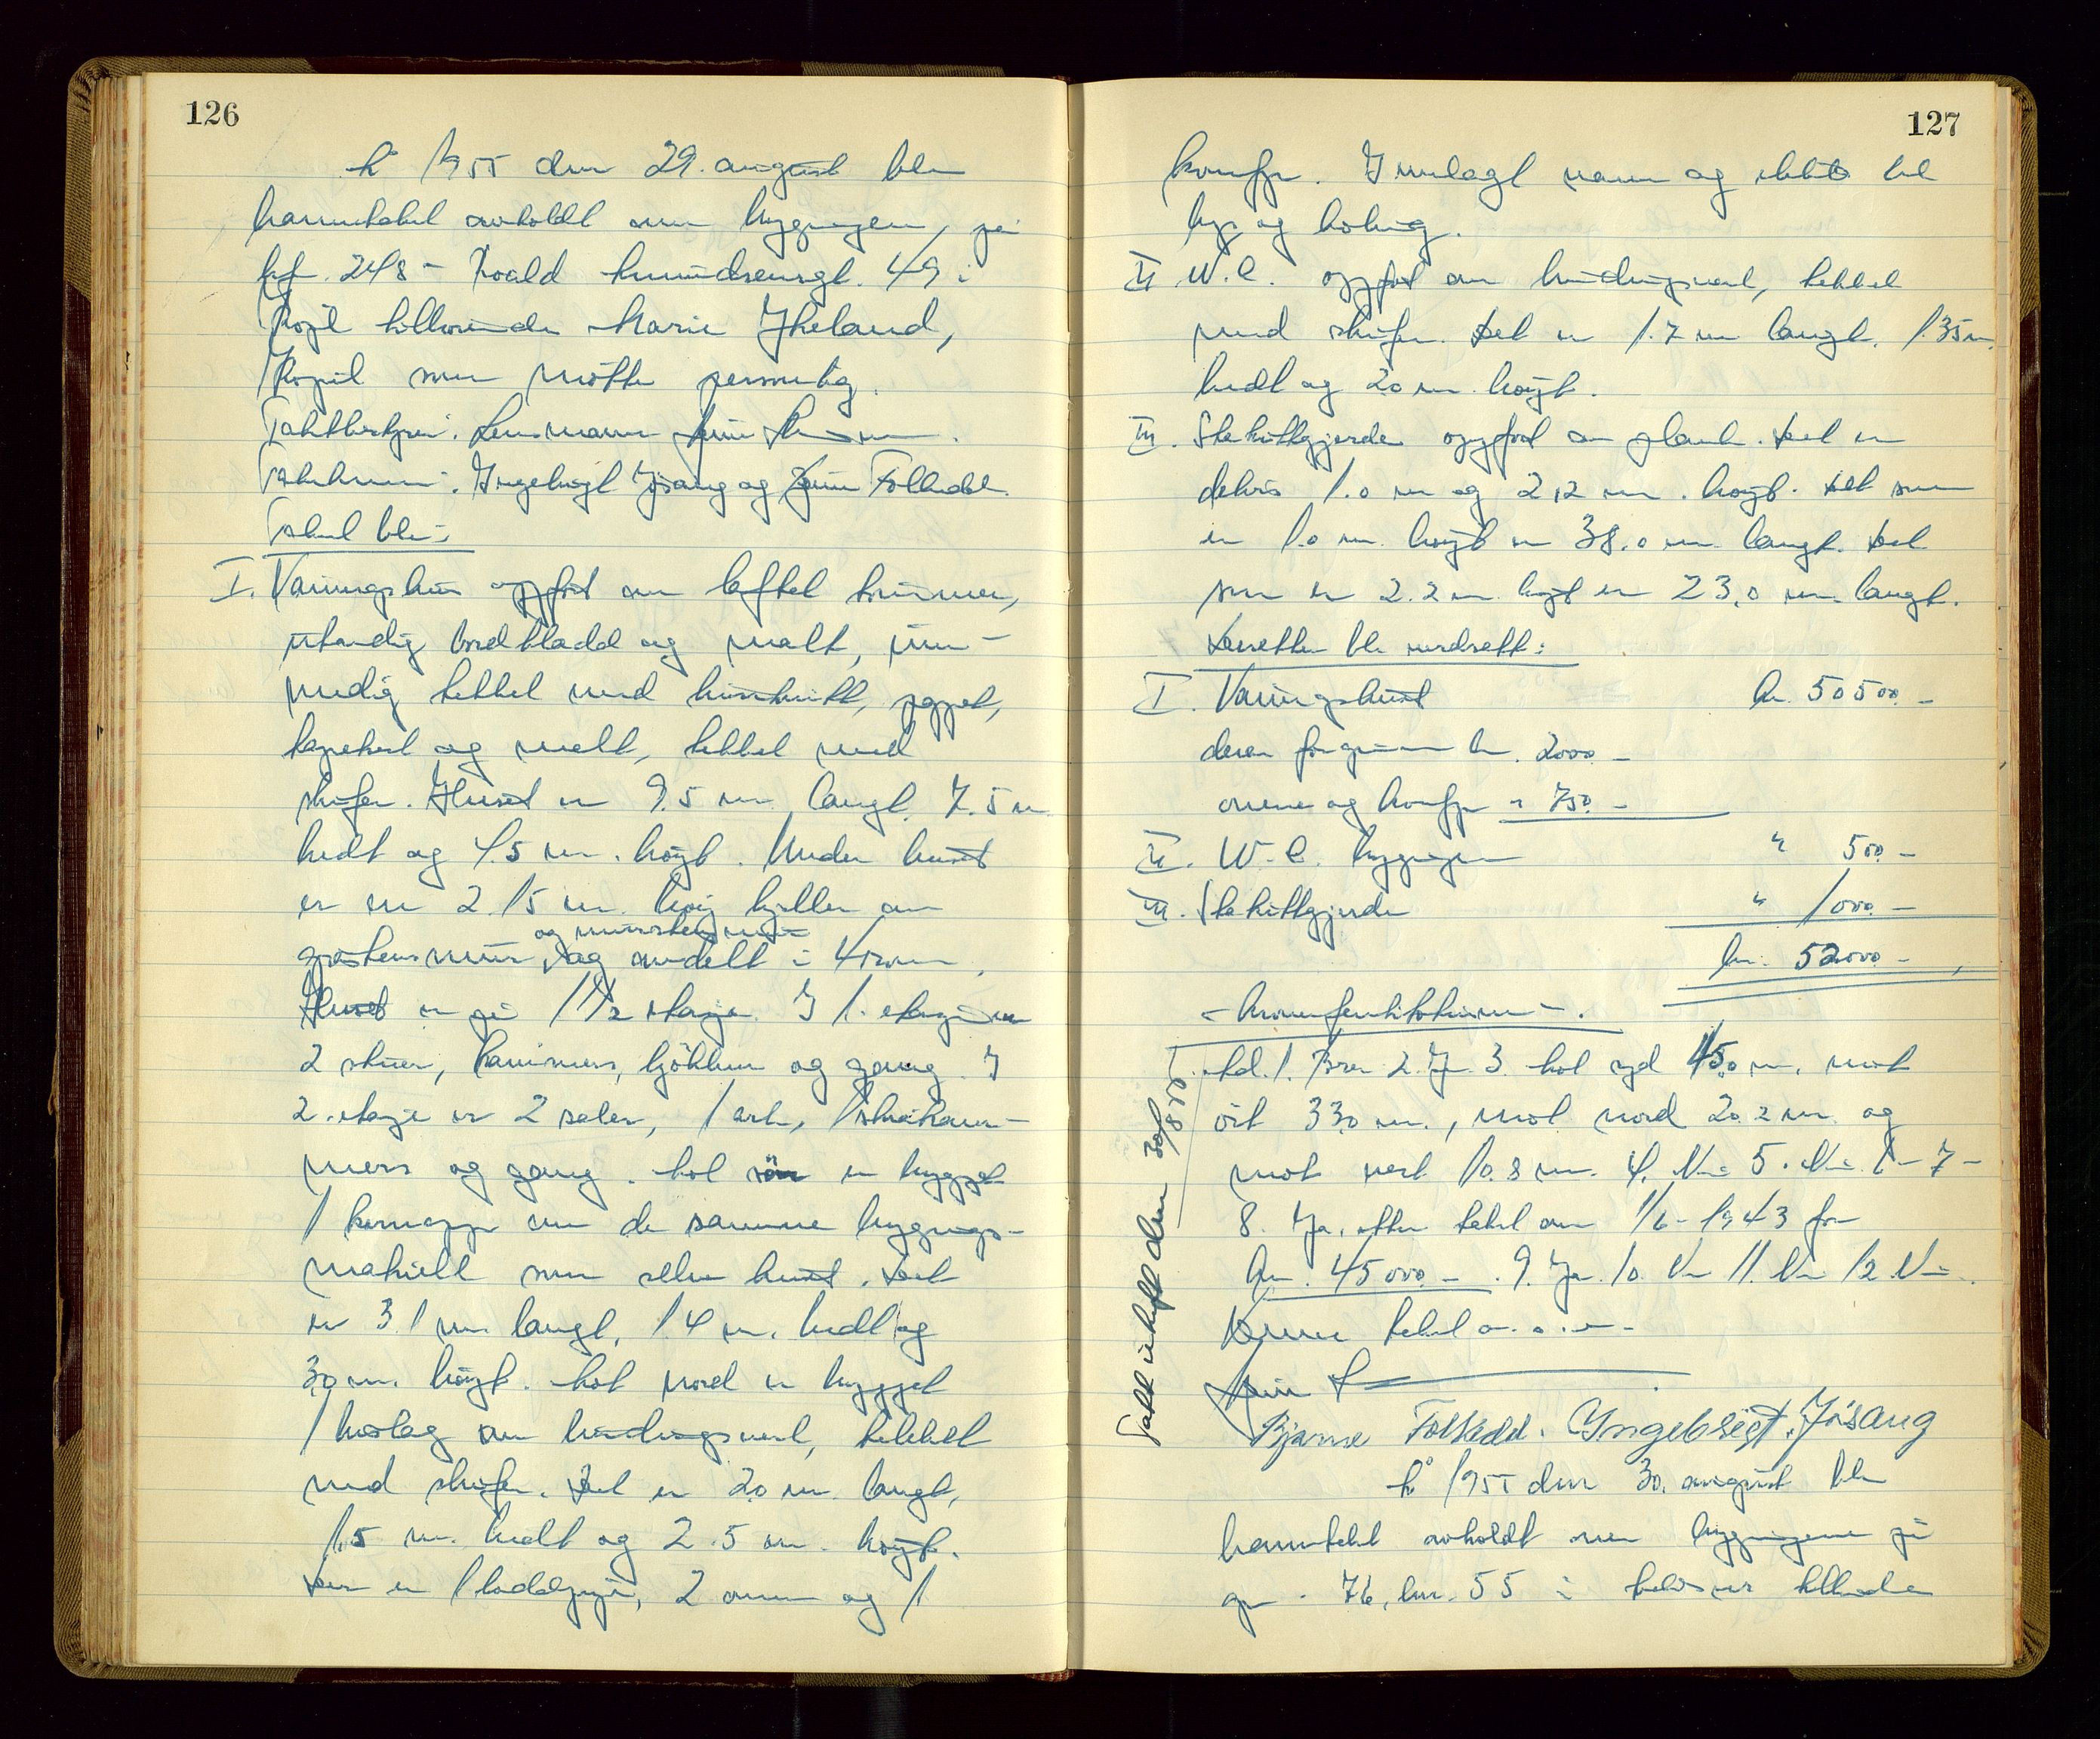 126
År 1955 den 29. august ble
branntakst avholdt over bygningen på
bf. 248 - Roald Amundsensgt. 49 i
Kopil tilhørende Marie Ikeland,
Kopil som møtte personlig.
Takstbestyrer: Lensmann
Takstmenn: Ingebrigt Jøsang og Bjarne Tolledal.
Takst ble:
I. Våningshus oppført av laftet tømmer,
utvendig bordkladd og malt, inn-
vendig tekket med huntonitt, papp,
tapetsert og malt, tekket med
skifer. Huset er 9.5 m langt, 7.5 m
bredt og 4.5 m. høyt. Under huset
er en 2.15 m. høy kjeller av
gråstensmur, og murstensmur og avdelt i 4 rom.
Huset er på 1 1/2 etasje. I 1. etasje er
2 stuer, kammers, kjøkken og gang. I
2. etasje er 2 saler, 1 ark, 1 skråkam-
mers og gang. Mot sør er bygget
1 karnapp av de samme bygnings-
materiell som selve huset. Det
er 3.1 m langt, 1.4 m. bredt og
3.0 m. høyt. Mot nord er bygget
1 bislag av bindingsverk, tekket
med skifer. Det er 2.0 m. langt,
1.5 m. bredt og 2.5 m. høyt.
Der er 1 loddpipe, 2 ovner og 1
127
komfyr. Innlagt vann og elektr. til
lys og koking.
II. W.C. oppført av bindingsverk, tekket
med skifer. Det er 1.7 m langt, 1.35 m.
bredt og 2.0 m. høyt.
III. Stakittgjerde oppført av plank. Det er
delvis 1.0 m og 2.2 m. høyt. Det som
er 1.0 m. høyt er 38.0 m. langt. Det
som er 2.2 m. høyt er 23.0 m. langt.
Deretter ble verdsatt:
I. Våningshuset kr. 50500.-
derav for grunnmur kr. 2000.-
ovner og komfyr " 750.-
II. W.C. bygningen " 500.-
III. Stakittgjerde " 1000.-
kr. 52000.-
- Brannforsiktighet -.
Ad. 1. Bra 2. Ja 3. Mot syd 45.0 m, mot
øst 33.0 m., mot nord 20.2 m. og
mot vest 10.8 m. 4. Nei 5. Nei 6 - 7 -
8. Ja, etter takst av 1/6-1943 for
kr. 45000.-. 9. Ja 10. Nei 11. Nei 12. Nei.
Denne takst
Bjarne Tolledal. Ingebrigt Jøsang
År 1955 den 30. august ble
branntakst avholdt over bygningene på
gnr. 76, bnr. 55 i tilhørende
Takst utskrift den 30/8 55